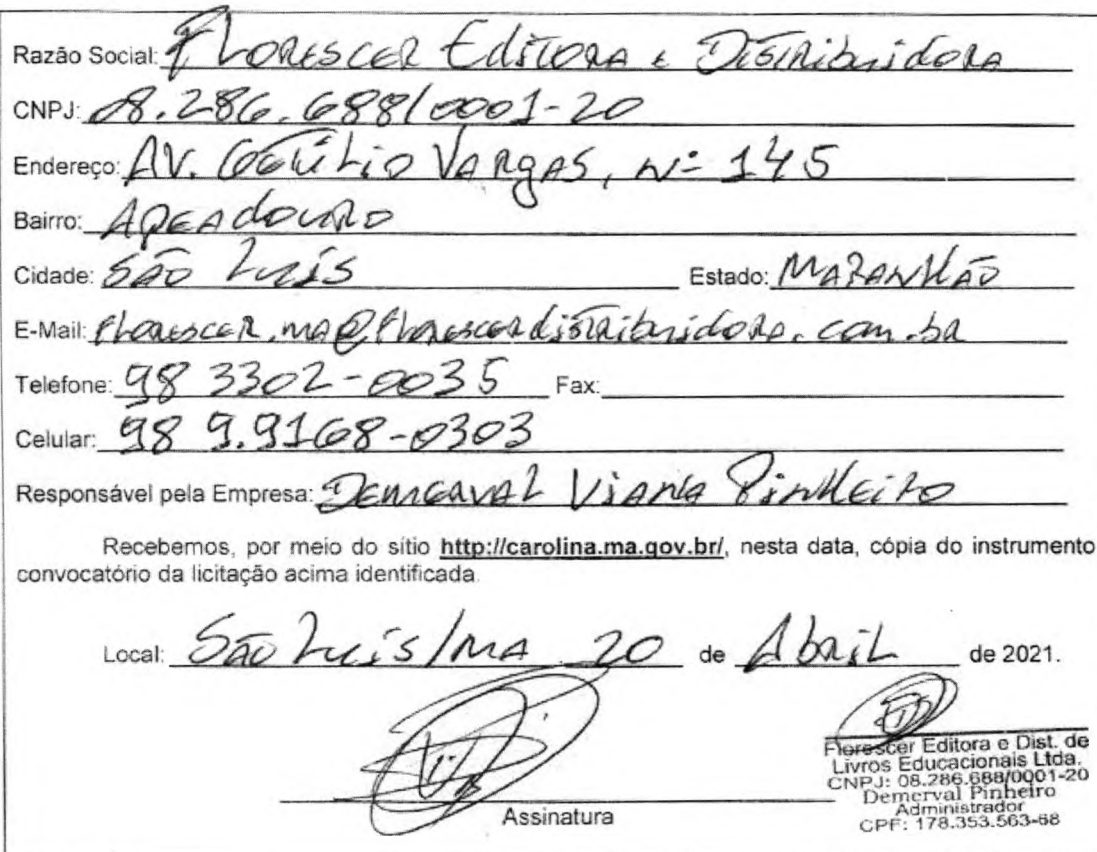 Razão Social: Florescer Editora e Distribuidora
CNPJ: 08.286.688/0001-20
Endereço: AV. Getúlio Vargas, nº 145
Bairro: Apeadouro
Cidade: São Luís Estado: Maranhão
E-Mail: florescer.ma@florescerdistribuidora.com.br
Telefone: 98 3302-0035 Fax:
Celular: 98 9.9168-0303
Responsável pela Empresa: Demerval Viana Pinheiro
Recebemos, por meio do sítio http://carolina.ma.gov.br/, nesta data, cópia do instrumento
convocatório da licitação acima identificada.
Local: São Luís/MA 20 de Abril de 2021.
Assinatura
Florescer Editora e Dist. de
Livros Educacionais Ltda.
CNPJ: 08.286.688/0001-20
Demerval Pinheiro
Administrador
CPF: 178.353.563-68